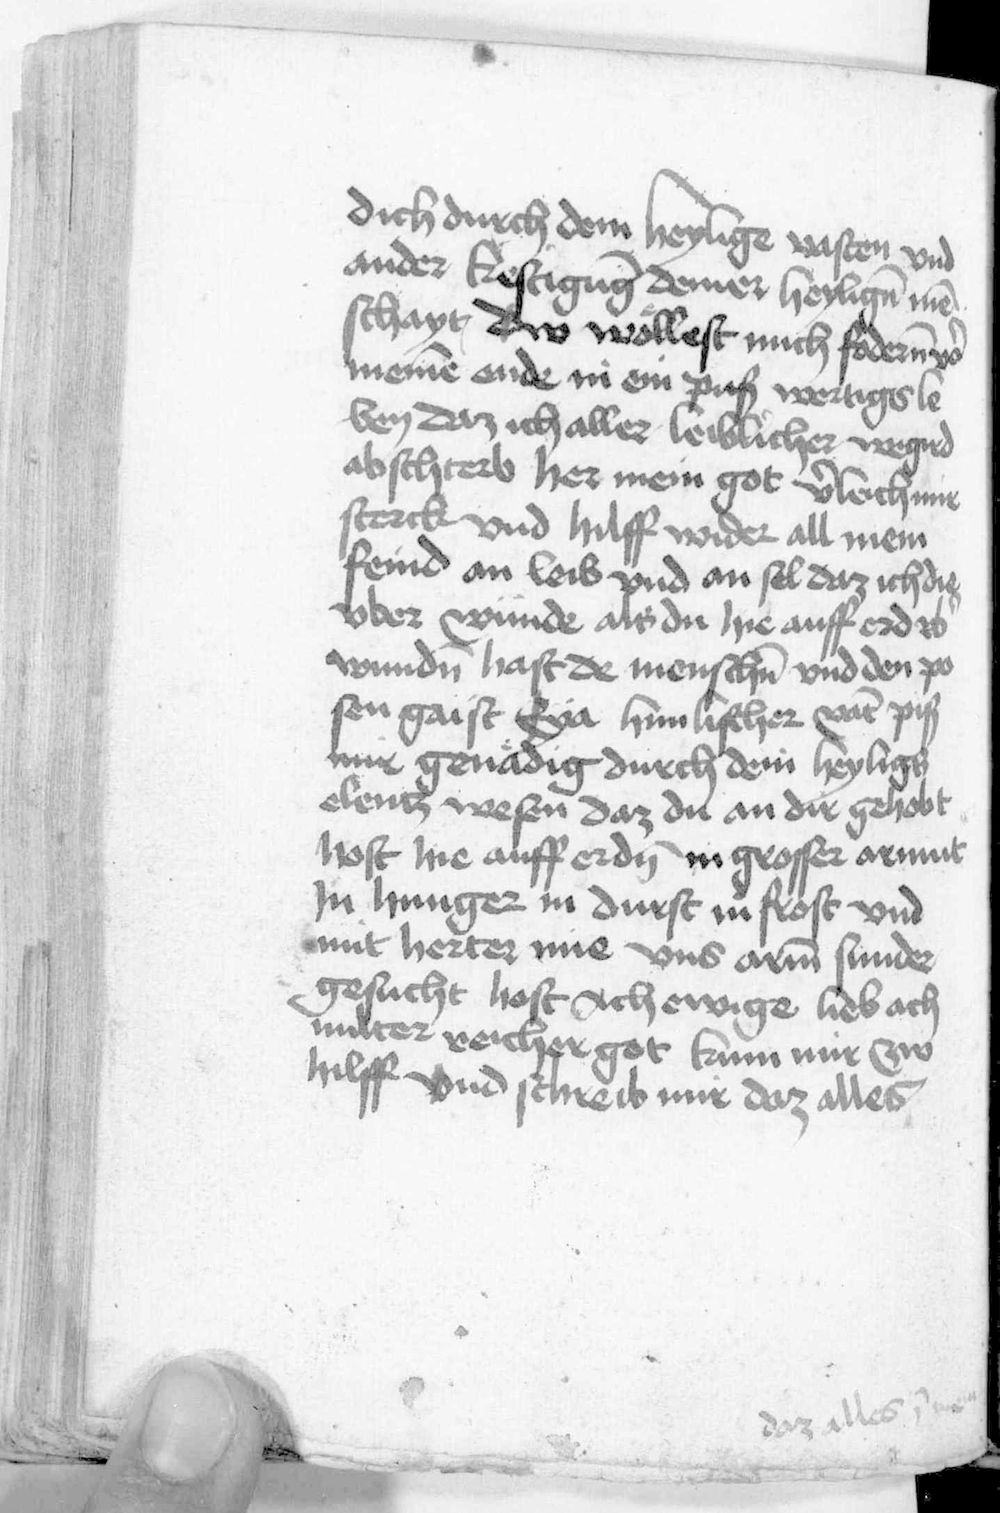 dich durch dein heylige vasten vnd
ander kestigūg deiner heyligñ mē
schayt Dw wöllest mich fodern vō
meinē ende in ein puß wertigs le
ben daz ich aller leiblicher wegird
abschterb her mein got v̄leich mir
sterck vnd hilff wider all mein
feind an leib vnd an sel daz ich die
vber wünde als du hie auff erd vb̄
wundn̄ hast de menschn̄ vnd den po
sen gaist Eya himlischer vat̄ piß
mir genädig durch dein heyligs
elentz wesen daz du an dir gehobt
host hie auff erdn̄ in grosser armut
In hunger in durst in frost vnd
mit herter mie vns arm̄ sunder
gesucht host Ach ewige lieb ach
milter reicher got kum mir zw
hilff vnd schreib mir daz alles
daz alles